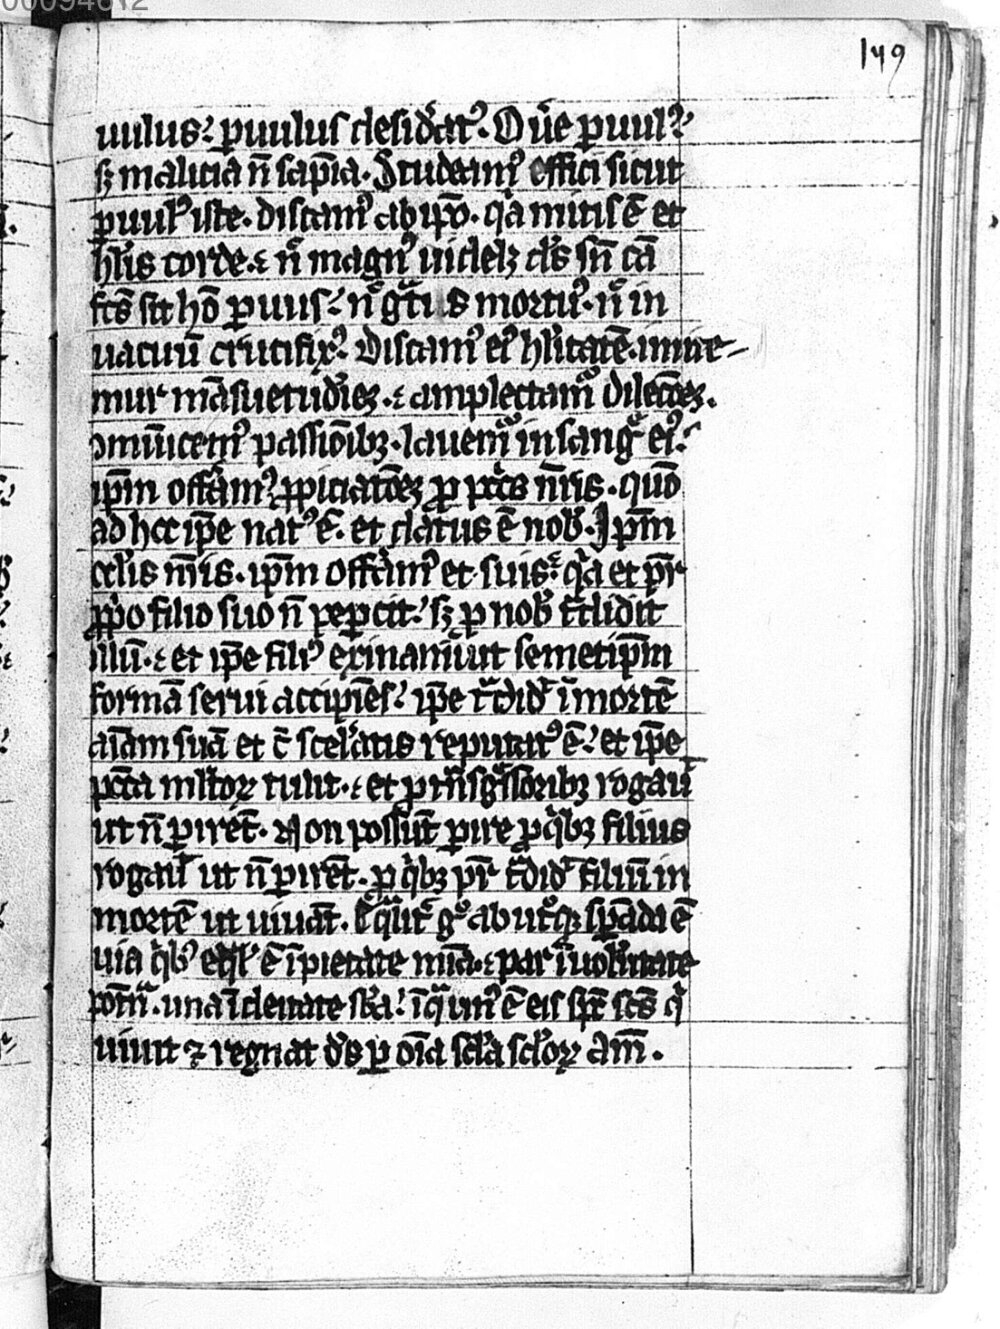 149
uulus? puulus desidat᷒. O ũe puul᷒?
sꝫ malicia ñ sapīa. Studeam᷒ effici sicut
puul᷒ iste. discam᷒ ab ip̄o. qͥa mitis ē et
hūis corde. ⁊ ñ magn᷒ uidelꝫ ds̄ sñ cā
fc̄s sit hō puus? ñ mortu᷒. ñ in
uacuū crucifix᷒. Discam᷒ ei᷒ hūlitatē. imite-
mur māsuetudīeꝫ. ⁊ amplectam᷒ dilcc̄oeꝫ.
ꝯmūicem᷒ passiōibꝫ. lauem᷒ in sang̃ ei᷒.
ip̄m offam᷒ ꝓpiciatōeꝫ ꝓ pcc̄is nr̄is. qūo
ad hec ip̄e nat᷒ ē. et datus ē nob̄. Ip̄m
oc̄lis nr̄is. ip̄m offam᷒ et suis. qͥa et pr̄
ꝓpͥo filio suo ñ peꝑcit? sꝫ ꝓ nob̄ tͣdidit
illū. ⁊ et ip̄e fili᷒ exinaniuit semetip̄m
formā serui accipiēs? ip̄e tͣdid̄ ī mortē
aīam suā et c̄ scel̄atis reputat᷒ ē? et ip̄e
pcc̄a mltoꝝ tulit. ⁊ et ꝓ tñsgͤssoribꝫ rogau̅
ut ñ ꝑirēt. Non possūt ꝑire ꝓ qͥbꝫ filius
rogau̅ ut ñ ꝑirēt. ꝓ qͥbꝫ pr̄ tͣdid̄ filiū in
mortē ut uiuāt. Eqͣlit̄ gͦ ab utͦqꝫ spāda ē
uia qͥb᷒ eqͣl᷒ ē ī pietate mīa. ⁊ par ī uolūtate
potn̄ᵃ. una ī deitate sb̄a? ī qͣ un᷒ ē eis spc̄ sc̄s qͥ
uiuit ⁊ regnat ds̄ ꝑ oīa scl̄a scl̄oꝝ am̄.